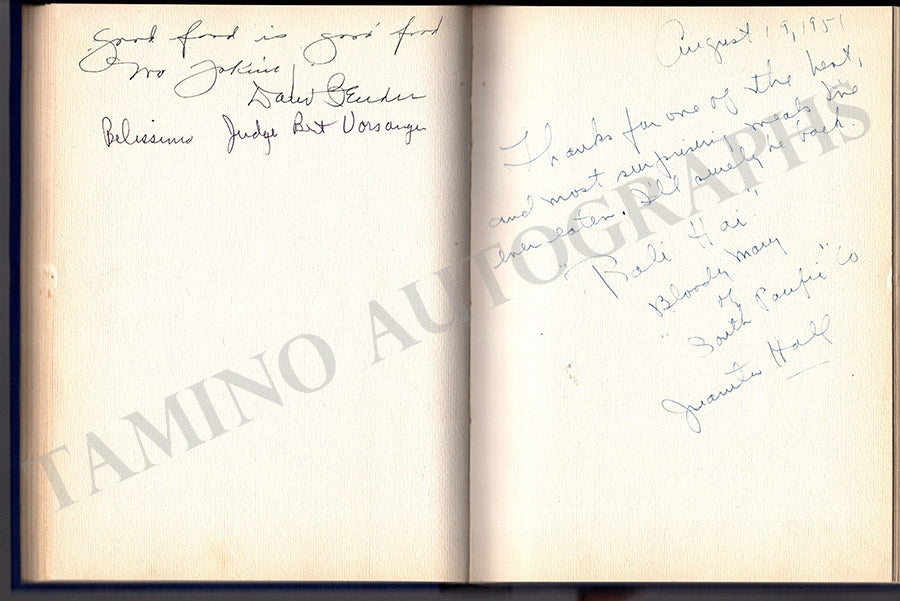 Good food is good food
no jokin!
David
Belissimo Judge Bert Vorsanger
August 19, 1951
Thanks for one of the best,
and most surprising meals I've
ever eaten. I'll surely be back.
"Bali Hai"
Bloody Mary
of
"South Pacific" Co
Juanita Hall
TAMINO AUTOGRAPHS